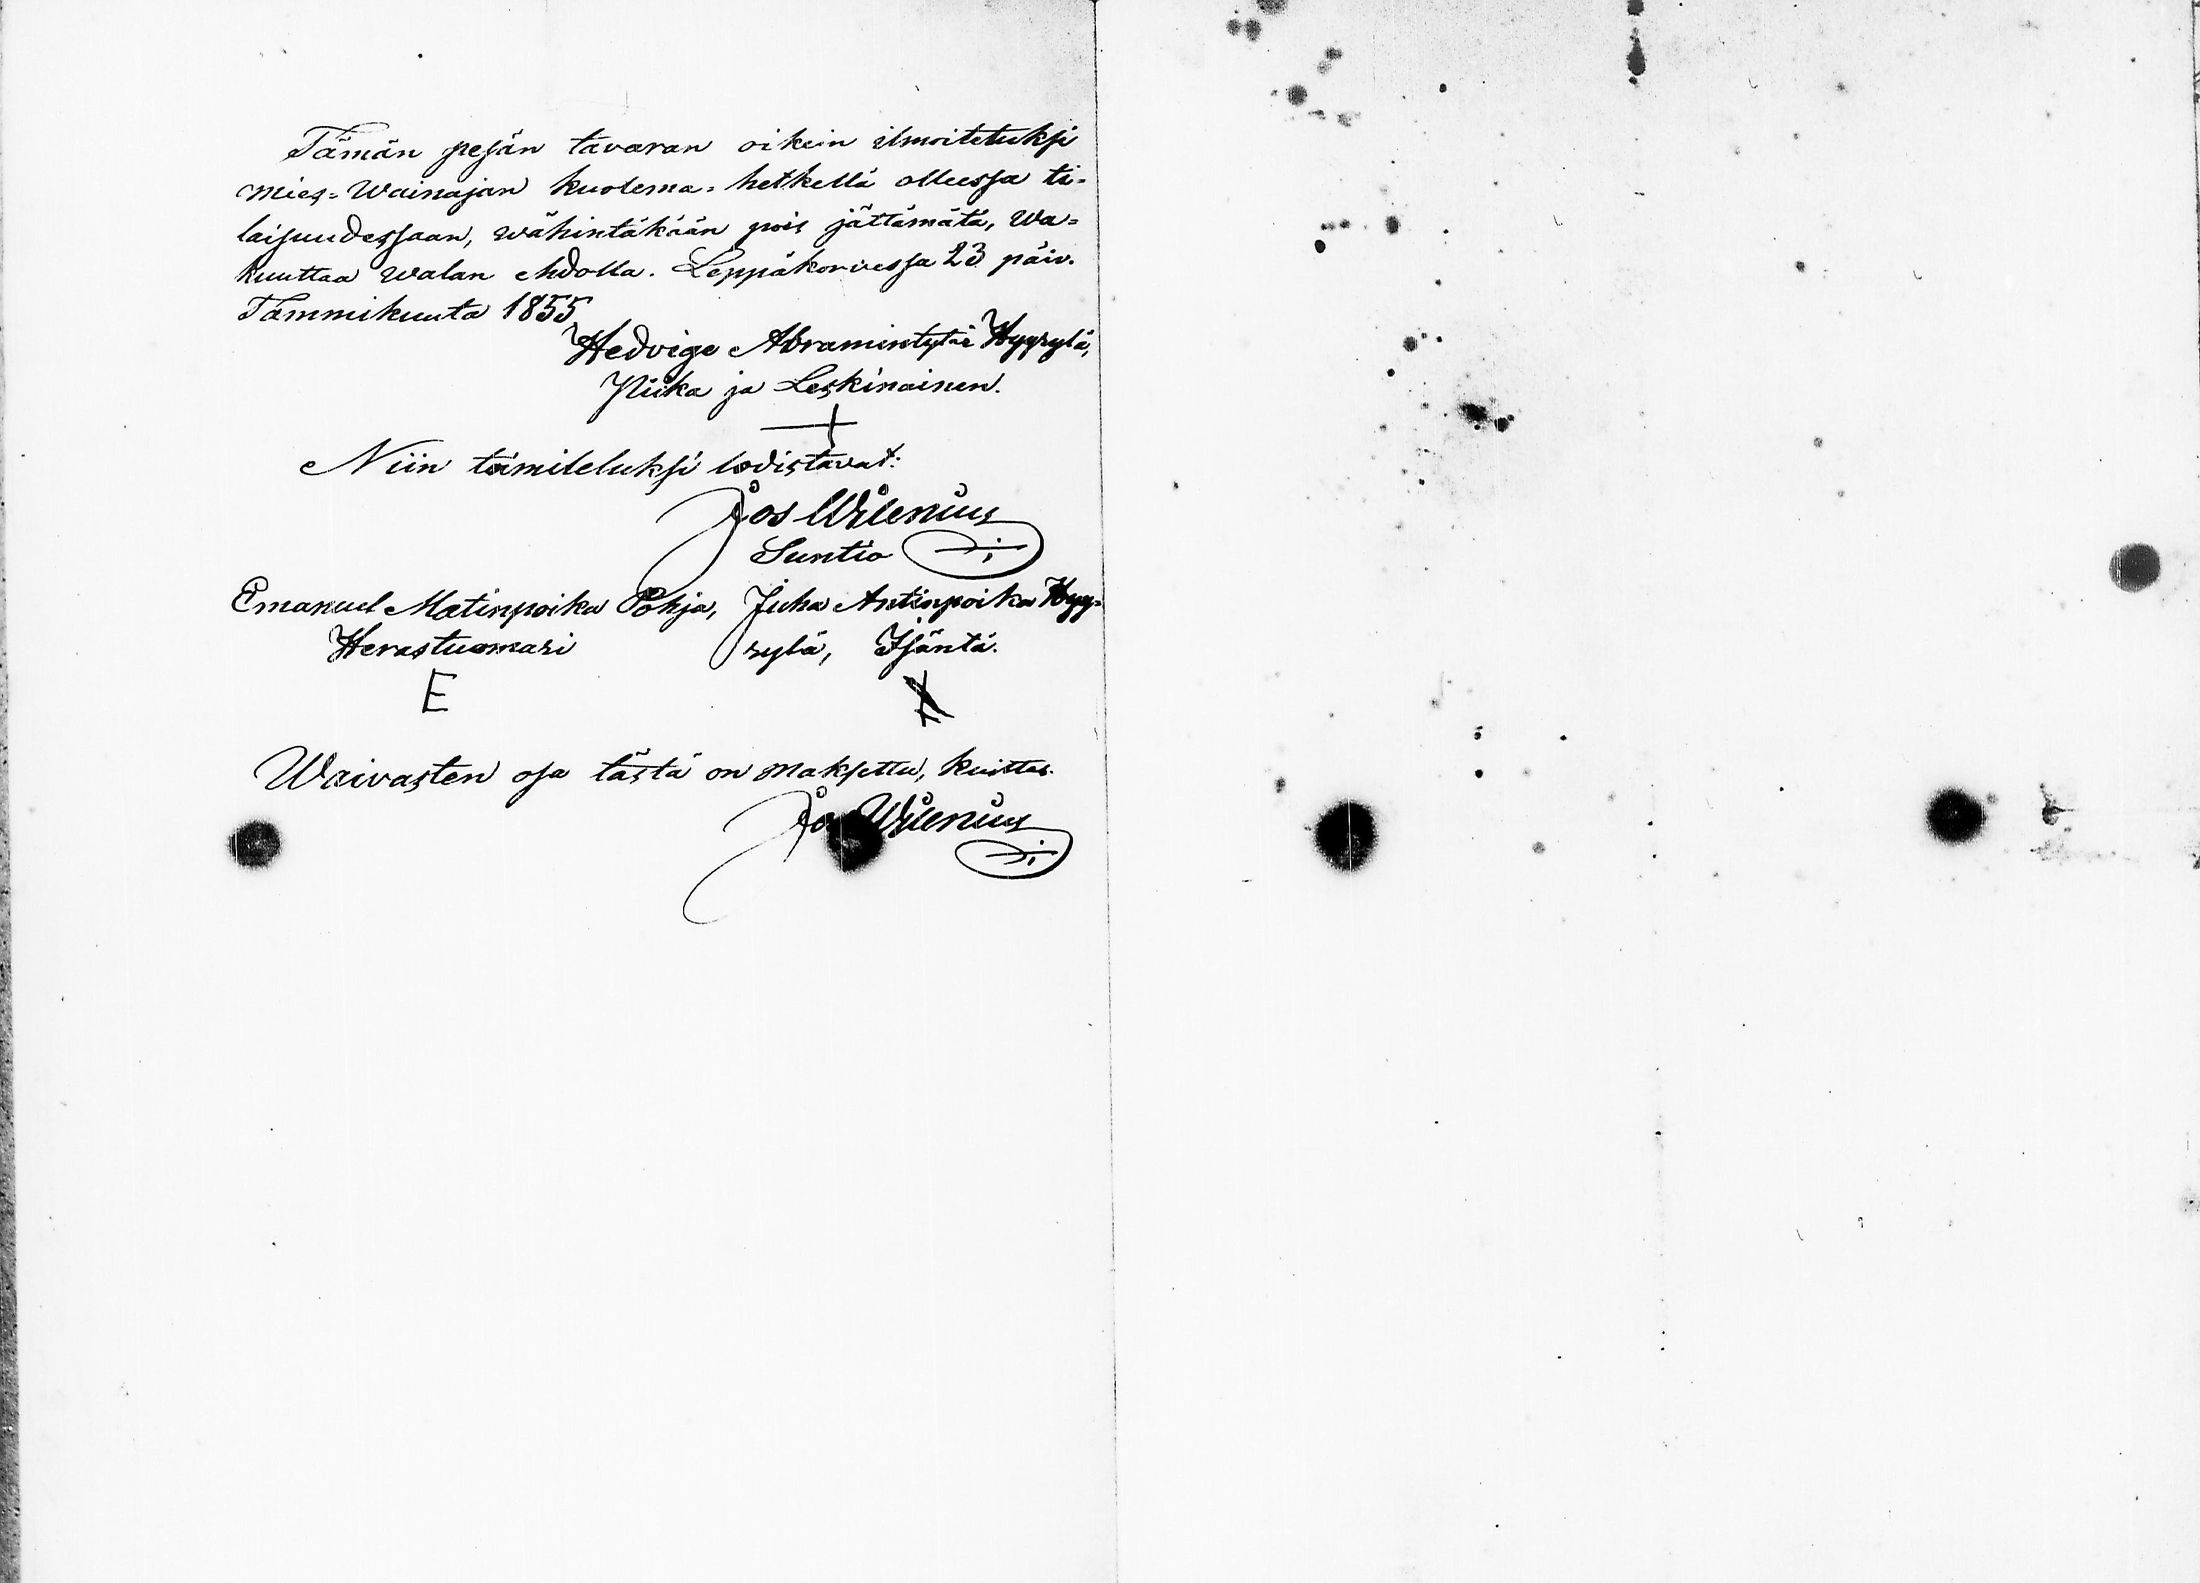 Tämän pesän tavaran oikein ilmoitetuksi
mies=Wainajan kuolema=hetkellä olleessa ti=
laisuudessaan, wähintäkään pois jättämätä, wa=
kuuttaa walan ehdolla. Leppäkorvessa 23 päiv.
Tammikuuta 1855
Hedvige Abramintytär Hyyrylä,
Piika ja Leskinainen.
Niin toimitetuksi todistavat:
Jos Wilenius
Suntio
Emanuel Matinpoika Pohja, Juha Antinpoika Hyy=
Herastuomari rylä, Isäntä.
E
Waivasten osa tästä on maksettu, kuittas.
Jos Wilenius